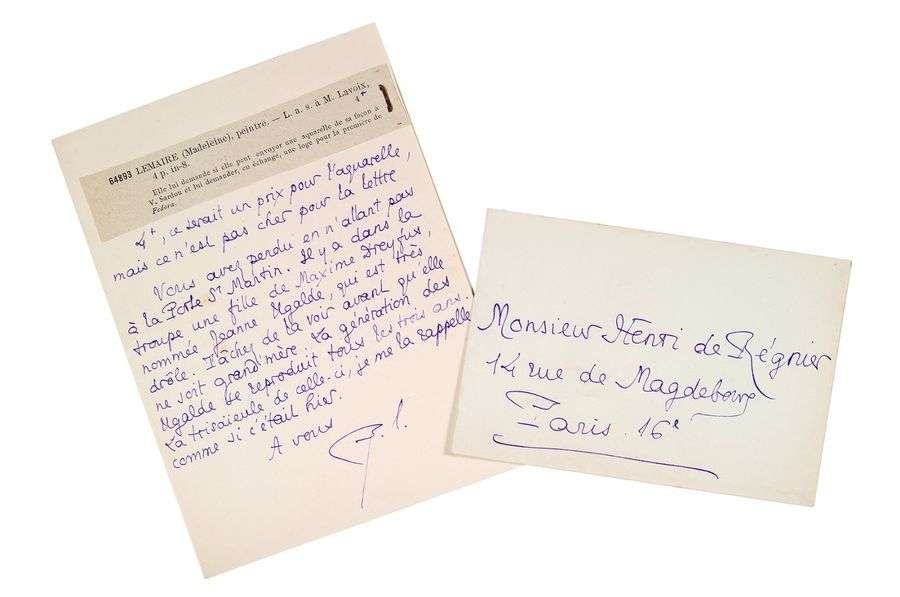 64893 LEMAIRE (Madeleine), peintre. — L. a. s. à M. Lavoix,
4 p. in-8. 4 ᶠ
Elle lui demande si elle peut envoyer une aquarelle de sa façon à
V. Sardou et lui demander, en échange, une loge pour la première de
Fedora.
4ᶠ, ce serait un prix pour l'aquarelle,
mais ce n'est pas cher pour la lettre
Vous avez perdu en n'allant pas
à la Porte Sᵗ Martin. Il y a dans la
troupe une fille de Maxime Dreyfus,
nommée Jeanne Ugalde, qui est très
drôle. Tâchez de la voir avant qu'elle
ne soit grand'mère. La génération des
Ugalde se reproduit tous les trois ans.
La trisaïeule de celle-ci, je me la rappelle
comme si c'était hier.
A vous
Monsieur Henri de Régnier
14 rue de Magdebourg
Paris. 16ᵉ